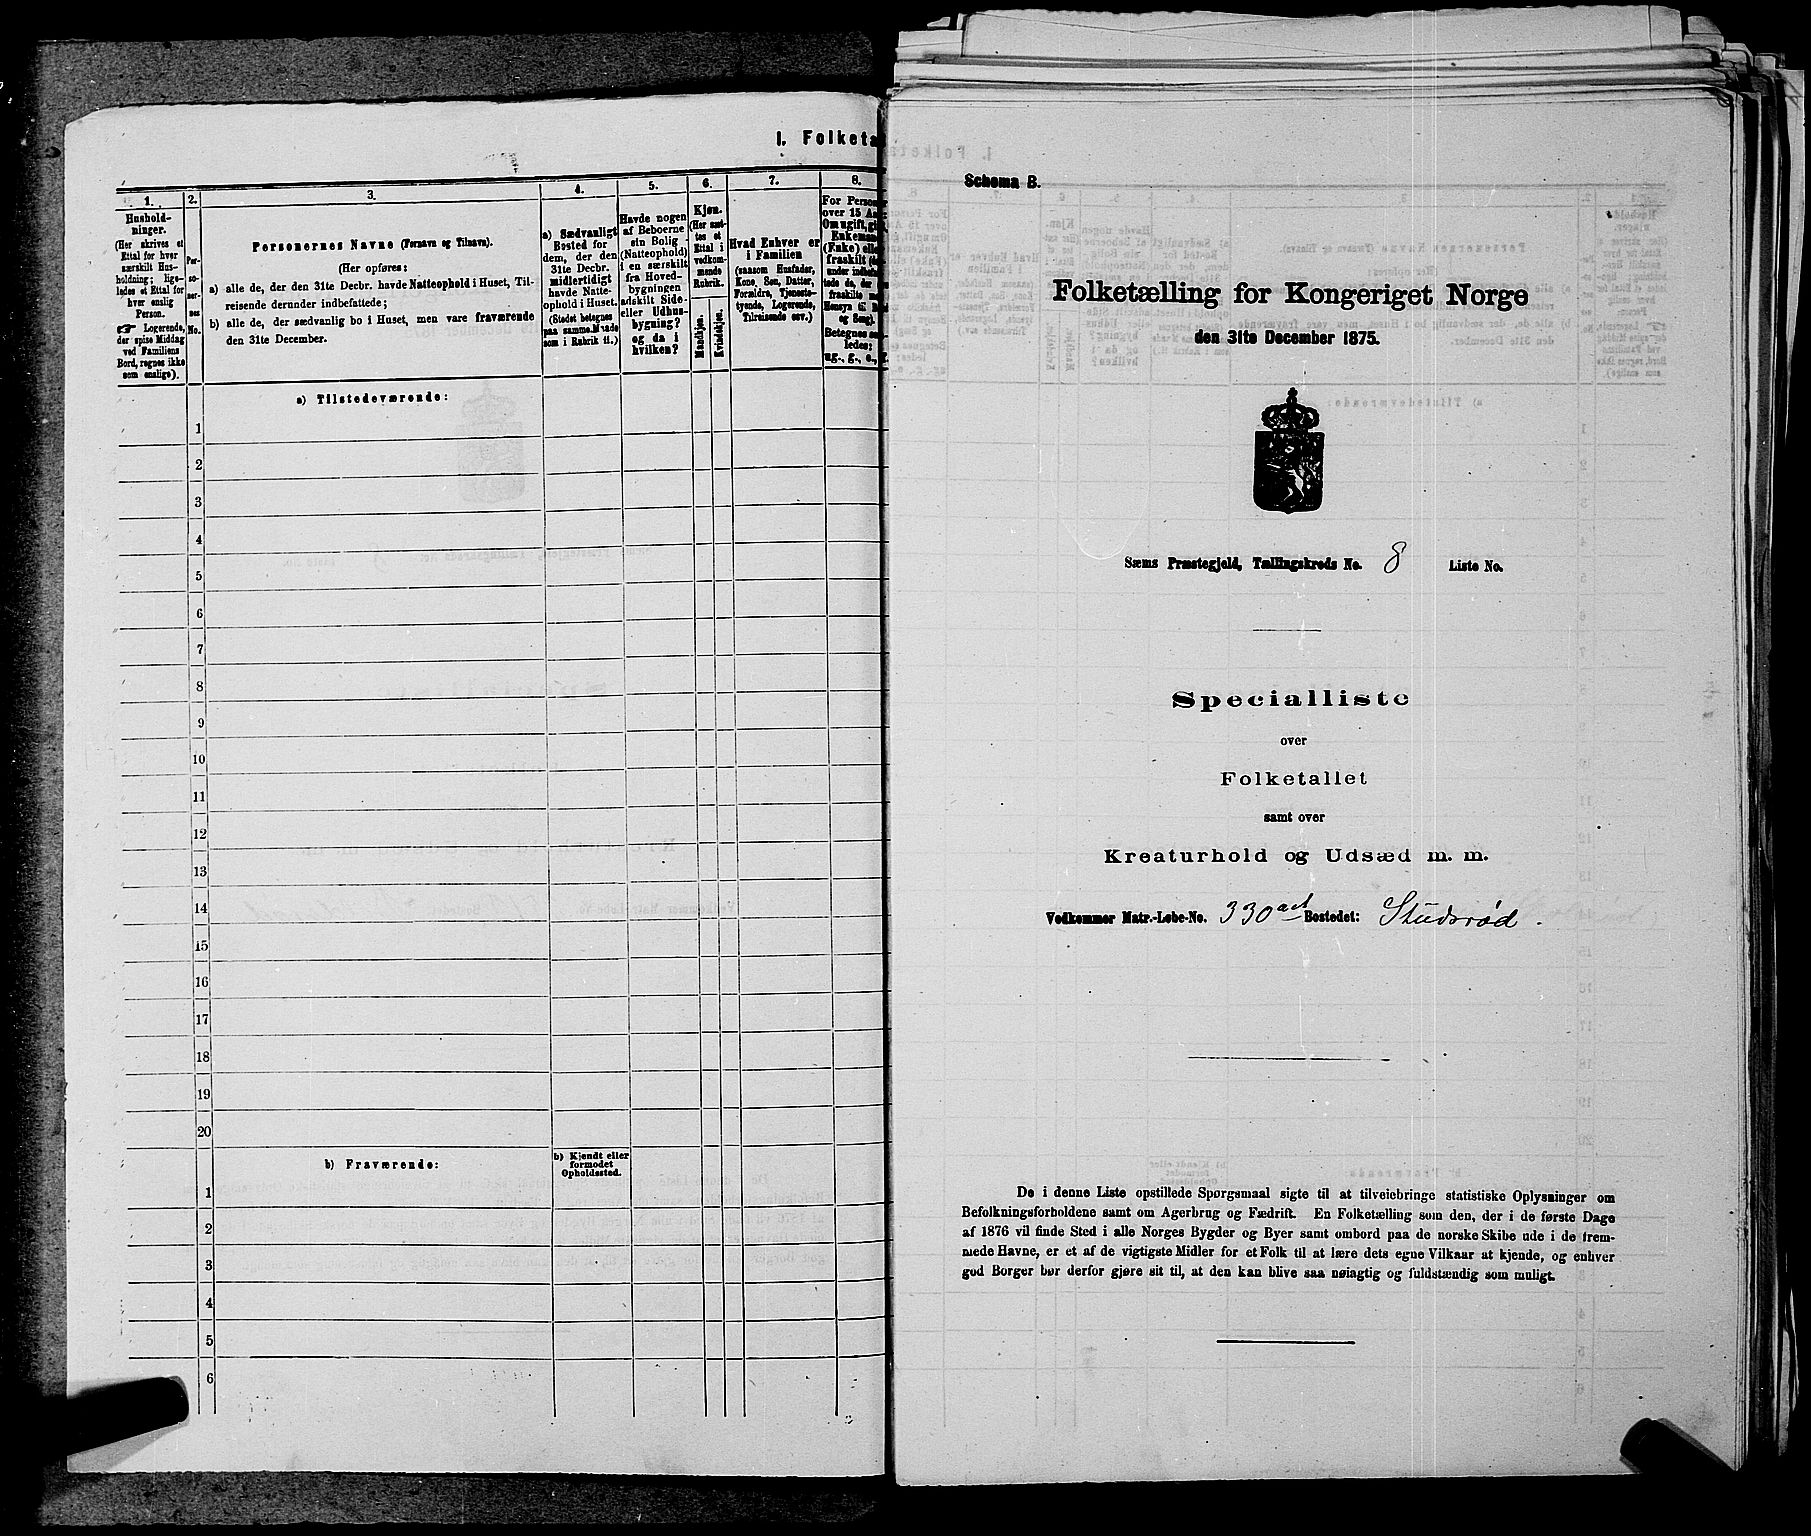 I. Folketa
1.
2.
3.
4.
5.
6.
7.
8.
Hushold-
ninger.
(Her skrives et
Ettal for hver
særskilt Hus-
holdning; lige-
ledes et Ettal for
hver enslig
Person.
☞ Logerende,
der spise Middag
ved Familiens
Bord, regnes ikke
som enslige).
Per-
so-
ner-
nes
No.
Personernes Navne (Fornavn og Tilnavn).
(Her opføres:
a) alle de, der den 31te Decbr. havde Natteophold i Huset, Til-
reisende derunder indbefattede;
b) alle de, der sædvanlig bo i Huset, men vare fraværende
den 31te December.
a) Sædvanligt
Bosted for
dem, der den
31te Decbr.
midlertidigt
havde Natte-
ophold i Huset.
(Stedet betegnes
paa samme Maade
som i Rubrik 11.)
Havde nogen
af Beboerne
sin Bolig
(Natteophold)
i en særskilt
fra Hoved-
bygningen
adskilt Side-
eller Udhus-
bygning?
og da i
hvilken?
Kjøn.
(Her sæt-
tes et
Ettal i
vedkom-
mende
Rubrik.
Mandkjøn.
Kvindekjøn.
Hvad Enhver er
i Familien
(saasom Husfader,
Kone, Søn, Datter,
Forældre, Tjeneste-
tyende, Logerende,
Tilreisende osv.)
For Person
over 15 Aar:
Om ugift, gift,
Enkemand
(Enke) eller
fraskilt
Betegnes
ledes:
ug., g., e.,
a) Tilstedeværende:
1
2
3
4
5
6
7
8
9
10
11
12
13
14
15
16
17
18
19
20
b) Fraværende:
b) Kjendt eller
formodet
Opholdssted.
1
2
3
4
5
6
Schema B.
Folketælling for Kongeriget Norge
den 31te December 1875.
Sæms Præstegjeld, Tællingskreds No. 8 Liste No.
Specialliste
over
Folketallet
samt over
Kreaturhold og Udsæd m. m.
Vedkommer Matr.-Løbe-No. 330 Bostedet: Studsrød.
De i denne Liste opstillede Spørgsmaal sigte til at tilveiebringe statistiske Oplysninger om
Befolkningsforholdene samt om Agerbrug og Fædrift. En Folketælling som den, der i de første Dage
af 1876 vil finde Sted i alle Norges Bygder og Byer samt ombord paa de norske Skibe ude i de frem-
mede Havne, er et af de vigtigste Midler for et Folk til at lære dets egne Vilkaar at kjende, og enhver
god Borger bør derfor gjøre sit til, at den kan blive saa nøiagtig og fuldstændig som muligt.